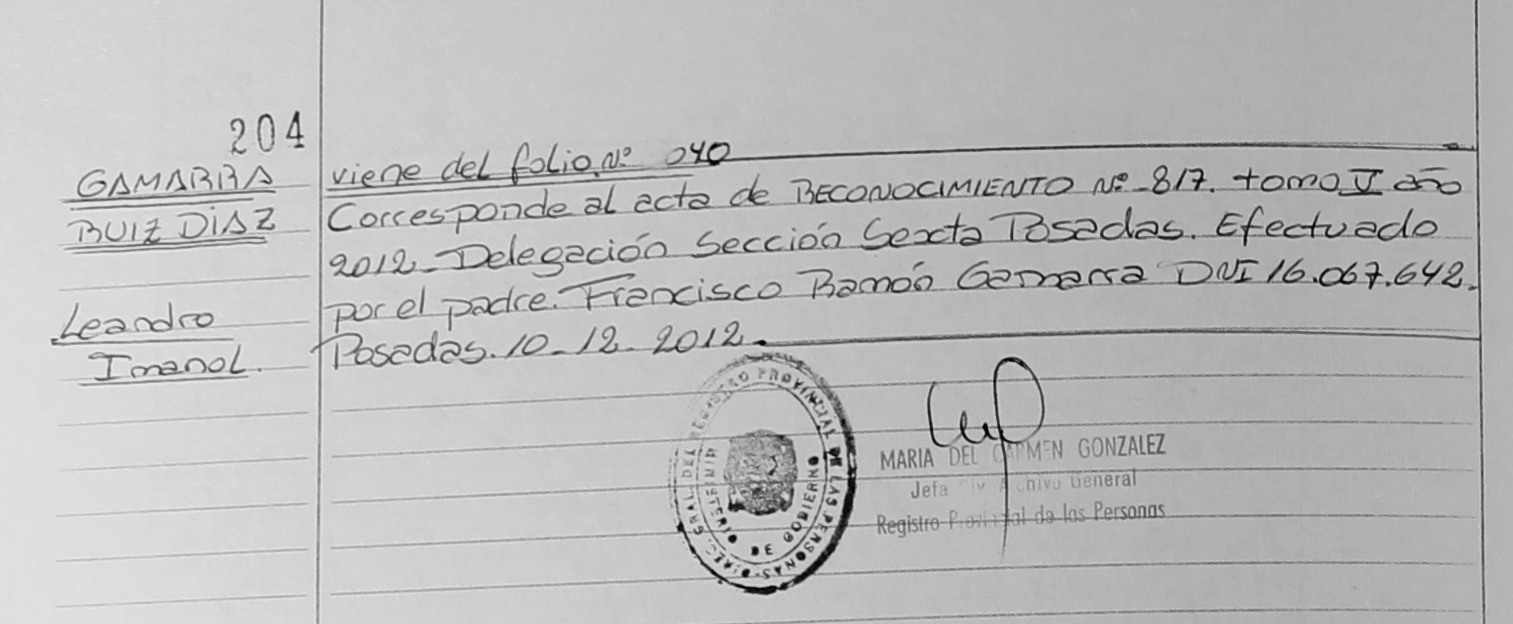 204
GAMARRA
RUIZ DIAZ
Leandro
Imanol.
viene del folio Nº 040
Corresponde al acta de RECONOCIMIENTO Nº 817. tomo V año
2012. Delegación Sección Sexta Posadas. Efectuado
por el padre. Francisco Ramón Gamarra DNI 16.067.642.
Posadas. 10-12-2012.
DIREC. GRAL. DEL REGISTRO PROVINCIAL DE LAS PERSONAS
MINISTERIO DE GOBIERNO
MARIA DEL CARMEN GONZALEZ
Jefa Archivo General
Registro Provincial de las Personas